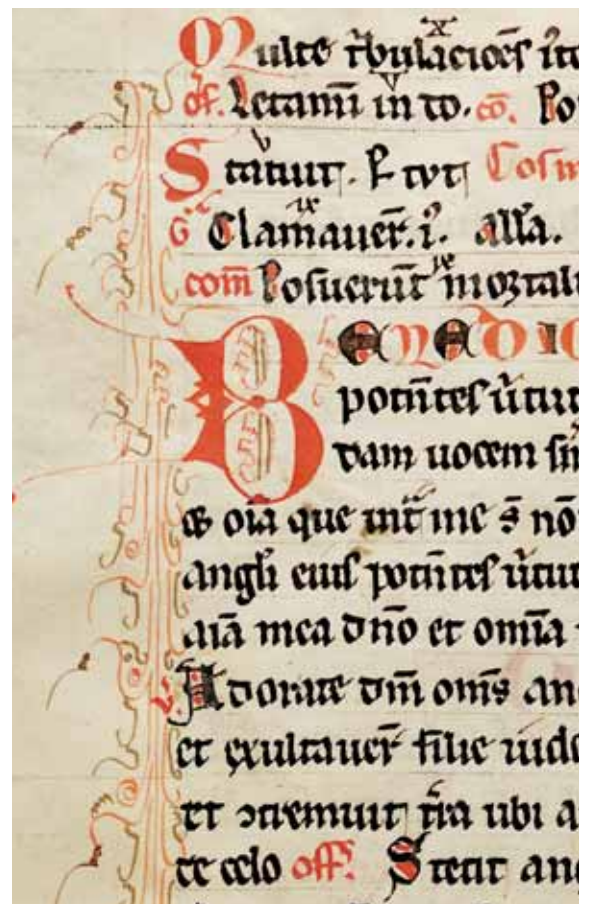 Multe tͥbulacio͞es íto
off. Letamī in dō. co͞. Po
Statuit. P. tvt Cosm
Gͬ Clamauer͞t. i. alla.
com͞ Posuerūt mortali
BENEDIC
poten͞tes ūtut
dam uocem
et oīa que int͞ me s̄ nō
angl̄i eius poten͞tes ūtut
aīā mea dn̄o et omīa
Adorate dm̄ om̄s an
et exultauer͞ filie iude
et ↄtremuit tr̄a ubi a
te celo off. Stetit ang